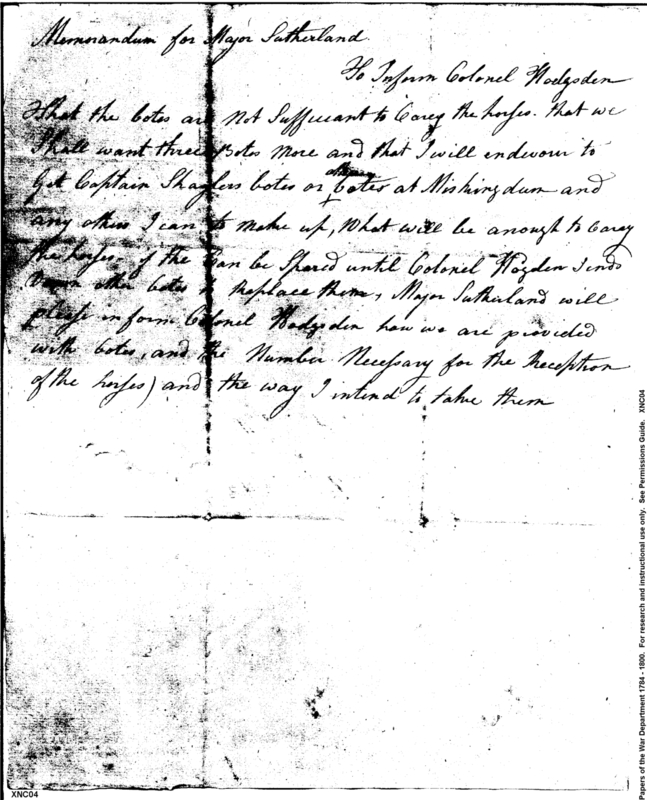 Memorandum for Major Sutherland
To Inform Colonel Hodgsden
That the botes are Not Suffucant to Carey the horses. that we
Shall want three Botes More and that I will endevour to
Get Captain botes or botes at Miskingdum and
any others I can to make up, What will be anough to Carey
the horses, if the Can be Spared until Colonel Hogden Sends
Down other botes to Replace them, Major Sutherland will
please inform Colonel Hodgsden how we are provided
with botes, and the Number Necessary for the Reception
of the horses) and the way I intend to take them
XNC04
Papers of the War Department 1784 - 1800. For research and instructional use only. See Permissions Guide. XNC04